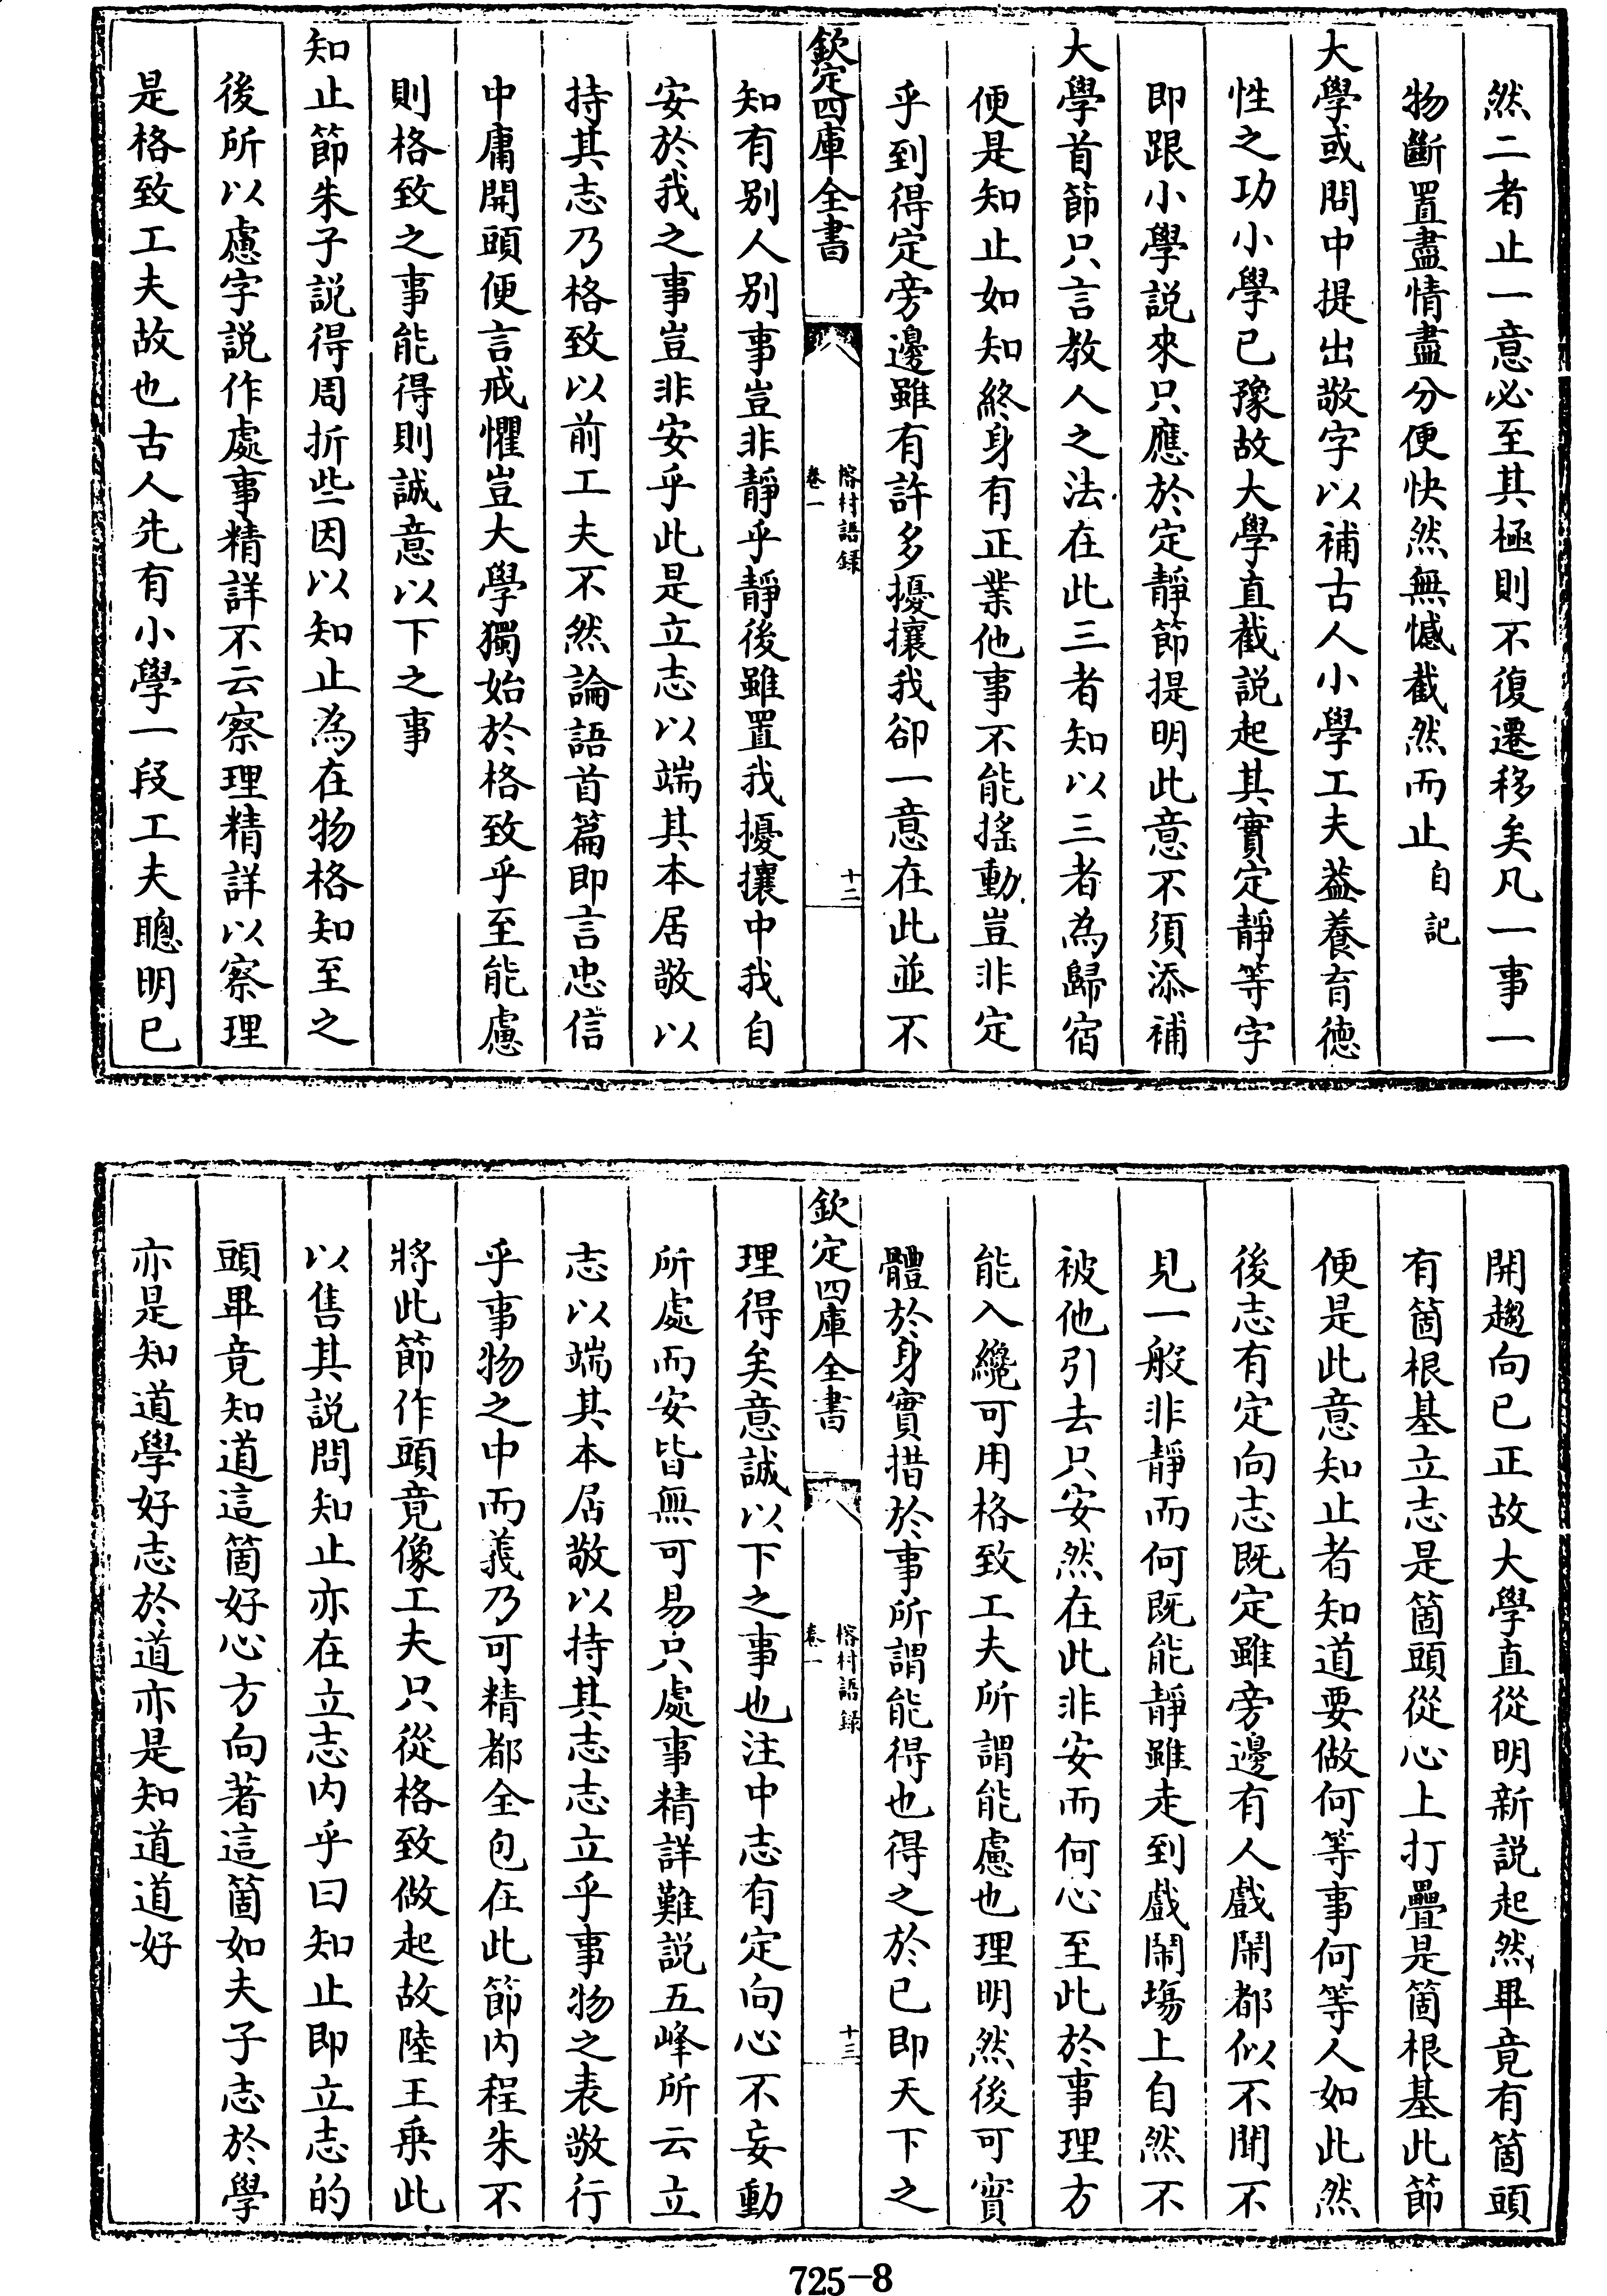 然二者止一意必至其極則不復遷移矣凡一事一
物斷置盡情盡分便快然無憾截然而止自記
大學或問中提出敬字以補古人小學工夫葢養育德
性之功小學已豫故大學直截說起其實定靜等字
即跟小學說來只應於定靜節提明此意不須添補
大學首節只言教人之法在此三者知以三者為歸宿
便是知止如知終身有正業他事不能搖動豈非定
乎到得定旁邊雖有許多擾攘我卻一意在此並不
欽定四庫全書
榕村語録
卷一
十二
知有别人别事豈非靜乎靜後雖置我擾攘中我自
安於我之事豈非安乎此是立志以端其本居敬以
持其志乃格致以前工夫不然論語首篇即言忠信
中庸開頭便言戒懼豈大學獨始於格致乎至能慮
則格致之事能得則誠意以下之事
知止節朱子説得周折些因以知止為在物格知至之
後所以慮字説作處事精詳不云察理精詳以察理
是格致工夫故也古人先有小學一段工夫聰明已
開趨向已正故大學直從明新説起然畢竟有箇頭
有箇根基立志是箇頭從心上打疊是箇根基此節
便是此意知止者知道要做何等事何等人如此然
後志有定向志既定雖旁邊有人戲鬧都似不聞不
見一般非靜而何既能靜雖走到戲鬧塲上自然不
被他引去只安然在此非安而何心至此於事理方
能入纔可用格致工夫所謂能慮也理明然後可實
體於身實措於事所謂能得也得之於已即天下之
欽定四庫全書
榕村語録
卷一
十三
理得矣意誠以下之事也注中志有定向心不妄動
所處而安皆無可易只處事精詳難説五峰所云立
志以端其本居敬以持其志志立乎事物之表敬行
乎事物之中而義乃可精都全包在此節内程朱不
將此節作頭竟像工夫只從格致做起故陸王乗此
以售其説問知止亦在立志内乎曰知止即立志的
頭畢竟知道這箇好心方向著這箇如夫子志於學
亦是知道學好志於道亦是知道道好
725-8